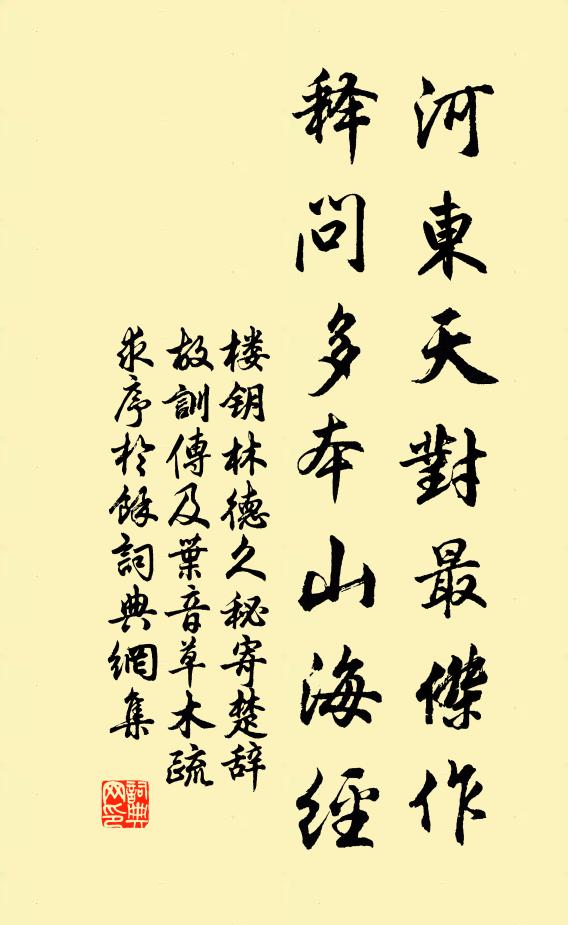 河東天對最傑作
释問多本山海經
楼钥林德久秘寄楚辞
故訓傳及葉音草木疏
求序於餘詞典網集
詞典网印